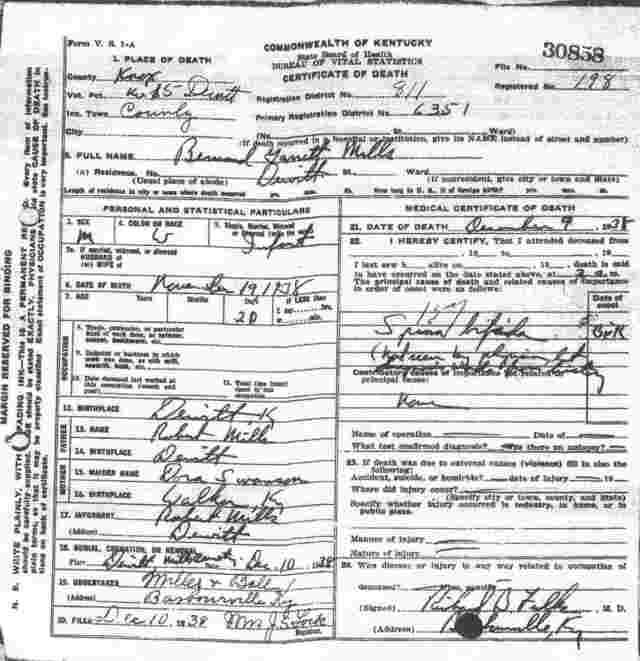 Form V. S. 1-A
COMMONWEALTH OF KENTUCKY
State Board of Health
BUREAU OF VITAL STATISTICS
CERTIFICATE OF DEATH
30858
File No.
Registered No. 198
1. PLACE OF DEATH
County Knox
Vot. Pct.
Inc. Town County
City
Registration District No. 811
Primary Registration District No. 6351
(No. St. Ward)
(If death occurred in a hospital or institution, give its NAME instead of street and number)
2. FULL NAME Bernard Garrett Mills
(a) Residence. No. Dewitt St. Ward
(Usual place of abode) (If nonresident, give city or town and State)
Length of residence in city or town where death occurred yrs. mos. ds. How long in U. S., if of foreign birth? yrs. mos. ds.
PERSONAL AND STATISTICAL PARTICULARS
3. SEX M
4. COLOR OR RACE W
5. Single, Married, Widowed or Divorced Infant
5a. If married, widowed, or divorced
HUSBAND of
(or) WIFE of
6. DATE OF BIRTH November 19 1938
7. AGE Years Months Days 20 If LESS than
1 day hrs.
or min.
OCCUPATION
8. Trade, profession, or particular kind of work done, as spinner, sawyer, bookkeeper, etc.
9. Industry or business in which work was done, as silk mill, sawmill, bank, etc.
10. Date deceased last worked at this occupation (month and year)
11. Total time (years) spent in this occupation
12. BIRTHPLACE Dewitt K
FATHER
13. NAME Robert Mills
14. BIRTHPLACE Dewitt
MOTHER
15. MAIDEN NAME Dora Swanson
16. BIRTHPLACE
17. INFORMANT Robert Mills
(Address) Dewitt
18. BURIAL, CREMATION, OR REMOVAL
Place Dewitt Date Dec. 10 1938
19. UNDERTAKER Miller & Ball
(Address) Barbourville Ky
20. FILED Dec 10 1938
Registrar.
MEDICAL CERTIFICATE OF DEATH
21. DATE OF DEATH December 9 1938
22. I HEREBY CERTIFY, That I attended deceased from
19 to 19
I last saw h alive on 19 death is said
to have occurred on the date stated above, at m.
The principal cause of death and related causes of importance
in order of onset were as follows:
Date of onset
157
Spina bifida Birth
(Not seen by physician but
Contributory causes of importance not related to
principal cause:
None
Name of operation Date of
What test confirmed diagnosis? Was there an autopsy?
23. If death was due to external causes (violence) fill in also the
following:
Accident, suicide, or homicide? date of injury 19
Where did injury occur?
(Specify city or town, county, and State)
Specify whether injury occurred in industry, in home, or in
public place.
Manner of injury
Nature of injury
24. Was disease or injury in any way related to occupation of
deceased?
(Signed) M. D.
(Address) Barbourville, Ky
MARGIN RESERVED FOR BINDING